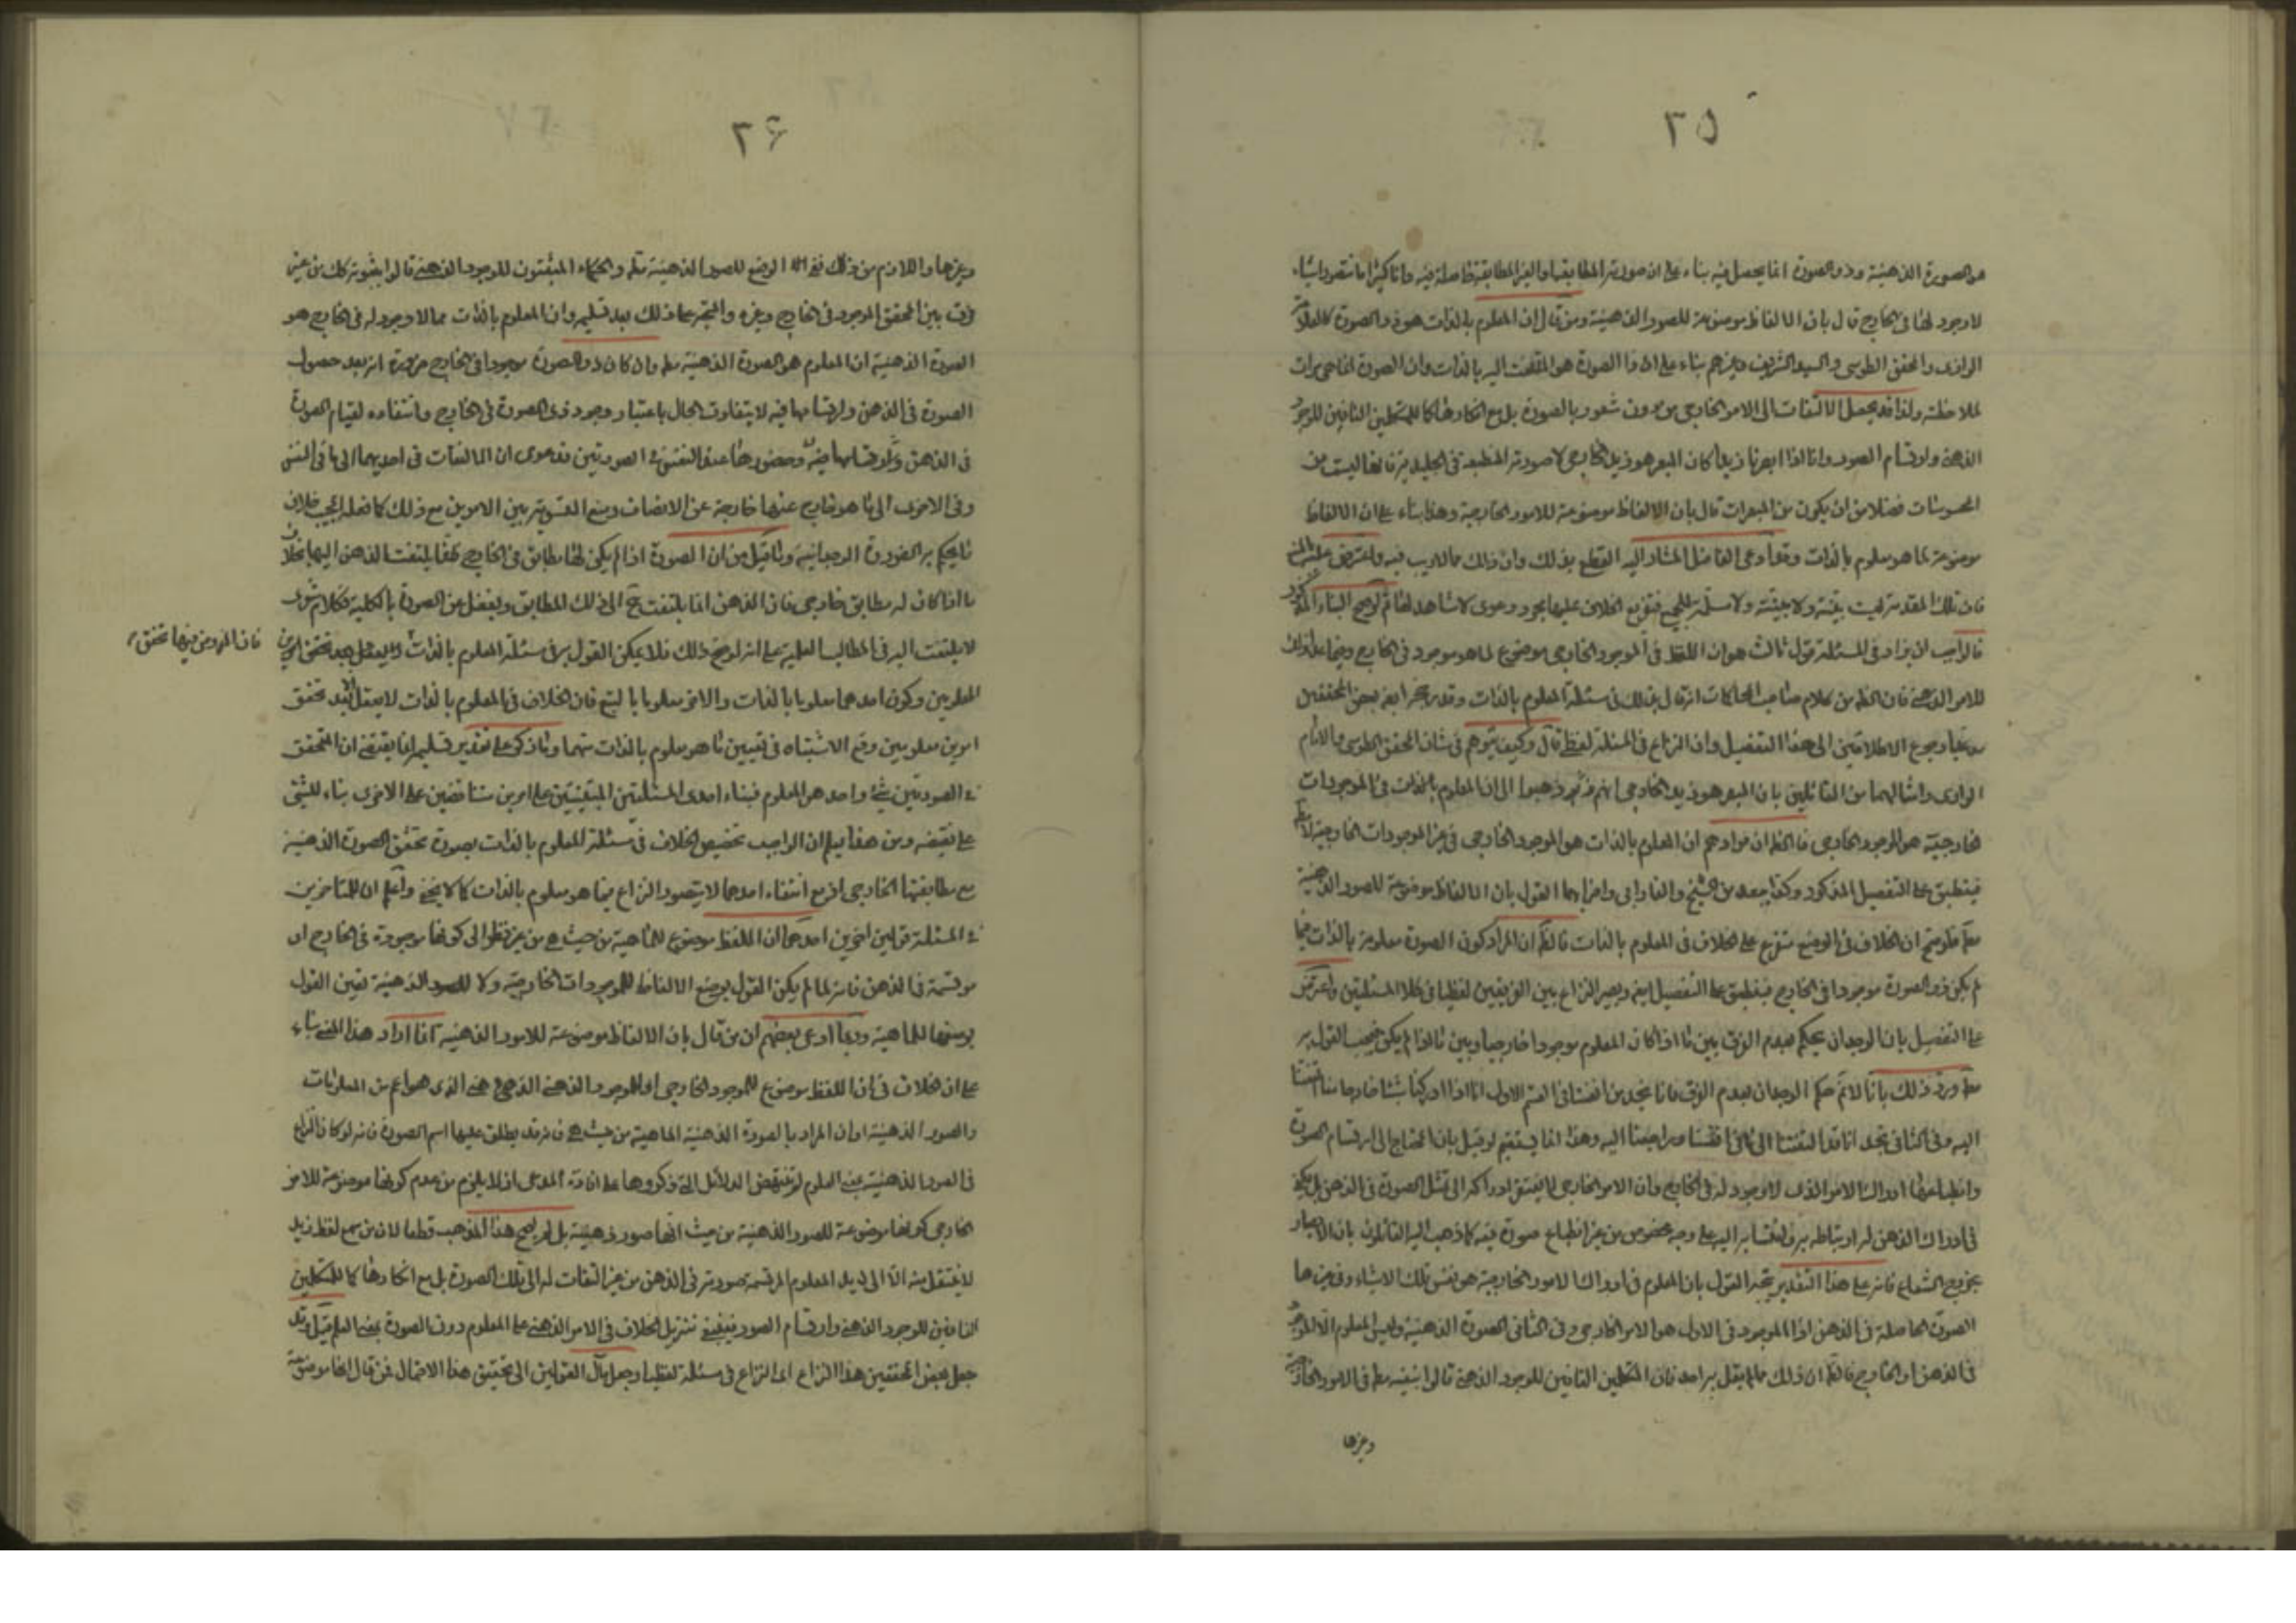 ٢٥
هو الصورة الذهنية وذو الصورة انما يحصل فيه بناء على ان صورته المطابقة او الغير المطابقة حاصلة فيه وانا كثيرا ما نتصور اشياء
لا وجود لها في الخارج قال بان الالفاظ موضوعة للصور الذهنية ومن قال ان المعلوم بالذات هو ذو الصورة كالعلامة
الرازى والمحقق الطوسى والسيد الشريف وغيرهم بناء على ان ذا الصورة هو الملتفت اليه بالذات وان الصورة انما هى مرات
لملاحظته ولذا قد يحصل الالتفات الى الامر الخارجى من دون شعور بالصورة بل مع انكارها كما للمتكلمين النافين للوجود
الذهنى وارتسام الصور وانا اذا ابصرنا زيدا كان المبصر هو زيد الخارجى لا صورته المنطبعة في الجليدية فانها ليست من
المحسوسات فضلا من ان يكون من المبصرات قال بان الالفاظ موضوعة للامور الخارجية وهذا بناء على ان الالفاظ
موضوعة لما هو معلوم بالذات وقد ادعى الفاضل المشار اليه القطع بذلك وان ذلك مما لا ريب فيه واعترض عليه
فان تلك المقدمة ليست بينة ولا مبينة ولا مسلمة للجميع فتفريع الخلاف عليها مجرد دعوى لا شاهد لها ثم لو صح البناء المذكور
فالواجب ان يزاد في المسئلة قول ثالث هو ان اللفظ في الموجود الخارجى موضوع لما هو موجود في الخارج وفيما عدا ذلك
للامر الذهنى فان الظ من كلام صاحب المحاكمات انه قال بذلك في مسئلة المعلوم بالذات وقد رجحه ايضا بعض المحققين
مدعيا رجوع الاطلاقين الى هذا التفصيل وان النزاع في المسئلة لفظى قال وكيف يتوهم في شان المحقق الطوسى والامام
الرازى وامثالهما من القائلين بان المبصر هو زيد الخارجى انهم ذهبوا الى ان المعلوم بالذات في الموجودات
الخارجية هو الموجود الخارجى فالظ ان مرادهم ان المعلوم بالذات هو الموجود الخارجى في غير الموجودات الخارجية لا مط
فينطبق على التفصيل المذكور وكذا يبعد من الشيخ والفارابى واضرابهما القول بان الالفاظ موضوعة للصور الذهنية
مط فلو صح ان الخلاف في الوضع متفرع على الخلاف في المعلوم بالذات فالظ ان المراد كون الصورة معلومة بالذات فيما
لم يكن ذو الصورة موجودا في الخارج فينطبق على التفصيل ايضا ويصير النزاع بين الفريقين لفظيا في كلا المسئلتين واعترض
على التفصيل بان الوجدان يحكم بعدم الفرق بين ما اذا كان المعلوم موجودا خارجيا وبين ما اذا لم يكن فيجب القول به
مط ورد ذلك بانا لا نم حكم الوجدان بعدم الفرق فانا نجد من انفسنا في القسم الاول انا اذا ادركنا شيئا خارجا منا التفتنا
اليه وفي الثانى نجد انا قد التفتنا الى ما في انفسنا مراجعتنا اليه وهذا انما يستقيم لو قيل بان المحتاج الى ارتسام الصورة
وانطباعها ادراك الامر الذى لا وجود له في الخارج وان الامر الخارجى لا يفتقر ادراكه الى تمثل الصورة في الذهن بل يكفى
في ادراك الذهن له ارتباطه به وانتسابه اليه على وجه مخصوص من غير انطباع صورة فيه كما ذهب اليه القائلون بان الابصار
بخروج الشعاع فانه على هذا التقدير يتجه القول بان المعلوم في ادراك الامور الخارجية هو نفس تلك الاشياء وفي غيرها
الصورة الحاصلة في الذهن اذ الموجود في الاول هو الامر الخارجى وفى الثانى الصورة الذهنية وليس المعلوم الا الموجود
في الذهن او الخارج فالظ ان ذلك مما لم يقل به احد فان المتكلمين النافين للوجود الذهنى قالوا بنفيه مط في الامور الخارجية
وغيرها
٢۶
وغيرها واللازم من ذلك نفى الوضع للصور الذهنية مط والحكماء المثبتون للوجود الذهنى قالوا بثبوته كك من غير
فرق بين المحقق الموجود في الخارج وغيره والمتجه على ذلك بعد تسليم وان المعلوم بالذات مما لا وجود له في الخارج هو
الصورة الذهنية ان المعلوم هو الصورة الذهنية مط وان كان ذو الصورة موجودا في الخارج ضرورة انه بعد حصول
الصورة في الذهن وارتسامها فيه لا يتفاوت الحال باعتبار وجود ذى الصورة في الخارج وانتفاءه لقيام الصورة
في الذهن وارتسامها فيه وحضورها عند النفس في الصورتين فدعوى ان الالتفات في احديهما الى ما في النفس
وفى الاخرى الى ما هو خارج عنها خارجة عن الانصاف ومنع التسوية بين الامرين مع ذلك كما فعله المجيب خلاف
ما يحكم به الضرورة الوجدانية وما قيل من ان الصورة اذا لم يكن لها مطابق في الخارج يلتفت الذهن اليها بخلاف
ما اذا كان له مطابق خارجى فان الذهن انما يلتفت ح الى ذلك المطابق ويغفل من الصورة بالكلية فكلام شعرى
لا يلتفت اليه في المطالب العلمية على انه لو صح ذلك فلا يمكن القول به في مسئلة المعلوم بالذات اذ يعقل بعد تحقق الامرين
فان المفروض فيها تحقق
المعلومين وكون احدهما معلوما بالذات والاخر معلوما بالتبع فان الخلاف في المعلوم بالذات لا يعقل الا بعد تحقق
امرين معلومين وقع الاشتباه في تعيين ما هو معلوم بالذات منهما وما ذكر على تقدير تسليمه انما يقتضى ان المتحقق
في الصورتين شئ واحد هو المعلوم فبناء احدى المسئلتين المبتنيتين على امرين متناقضين على الاخرى بناء للشئ
على نقيضه ومن هذا يعلم ان الواجب تخصيص الخلاف في مسئلة المعلوم بالذات بصورة تحقق الصورة الذهنية
مع مطابقها الخارجى اذ مع انتفاء احدهما لا يتصور النزاع فيما هو معلوم بالذات كما لا يخفى واعلم ان للمتاخرين
في المسئلة قولين اخرين احدهما ان اللفظ موضوع للماهية من حيث هى من غير نظر الى كونها موجودة في الخارج او
مرتسمة في الذهن فانه لما لم يكن القول بوضع الالفاظ للموجودات الخارجية ولا للصور الذهنية تعين القول
بوضعها للماهية وربما ادعى بعضهم ان من قال بان الالفاظ موضوعة للامور الذهنية انما اراد هذا المعنى بناء
على ان الخلاف في ان اللفظ موضوع للموجود الخارجى او للموجود الذهنى الذى هو اعم من المعلومات
والصور الذهنية او ان المراد بالصورة الذهنية الماهية من حيث هى فانه قد يطلق عليها اسم الصورة فانه لو كان النزاع
في الصور الذهنية بمعنى العلوم لم تنتهض الدلائل التى ذكروها على اثبات المدعى اذ لا يلزم من عدم كونها موضوعة للامر
الخارجى كونها موضوعة للصور الذهنية من حيث انها صور ذهنية بل لم يصح هذا المذهب قطعا لان من سمع لفظ زيد
لا ينتقل منه الا الى زيد المعلوم المرتسمة صورته في الذهن من غير التفات له الى تلك الصورة بل مع انكارها كما للمتكلمين
النافين للوجود الذهنى وارتسام الصور فينبغى تنزيل الخلاف في الامر الذهنى على المعلوم دون الصورة بمعنى العلم قيل وقد
جعل بعض المحققين هذا النزاع اى النزاع في مسئلة لفظيا وجعل مآل القولين الى تحقيق هذا الاحتمال فمن قال انها موضوعة